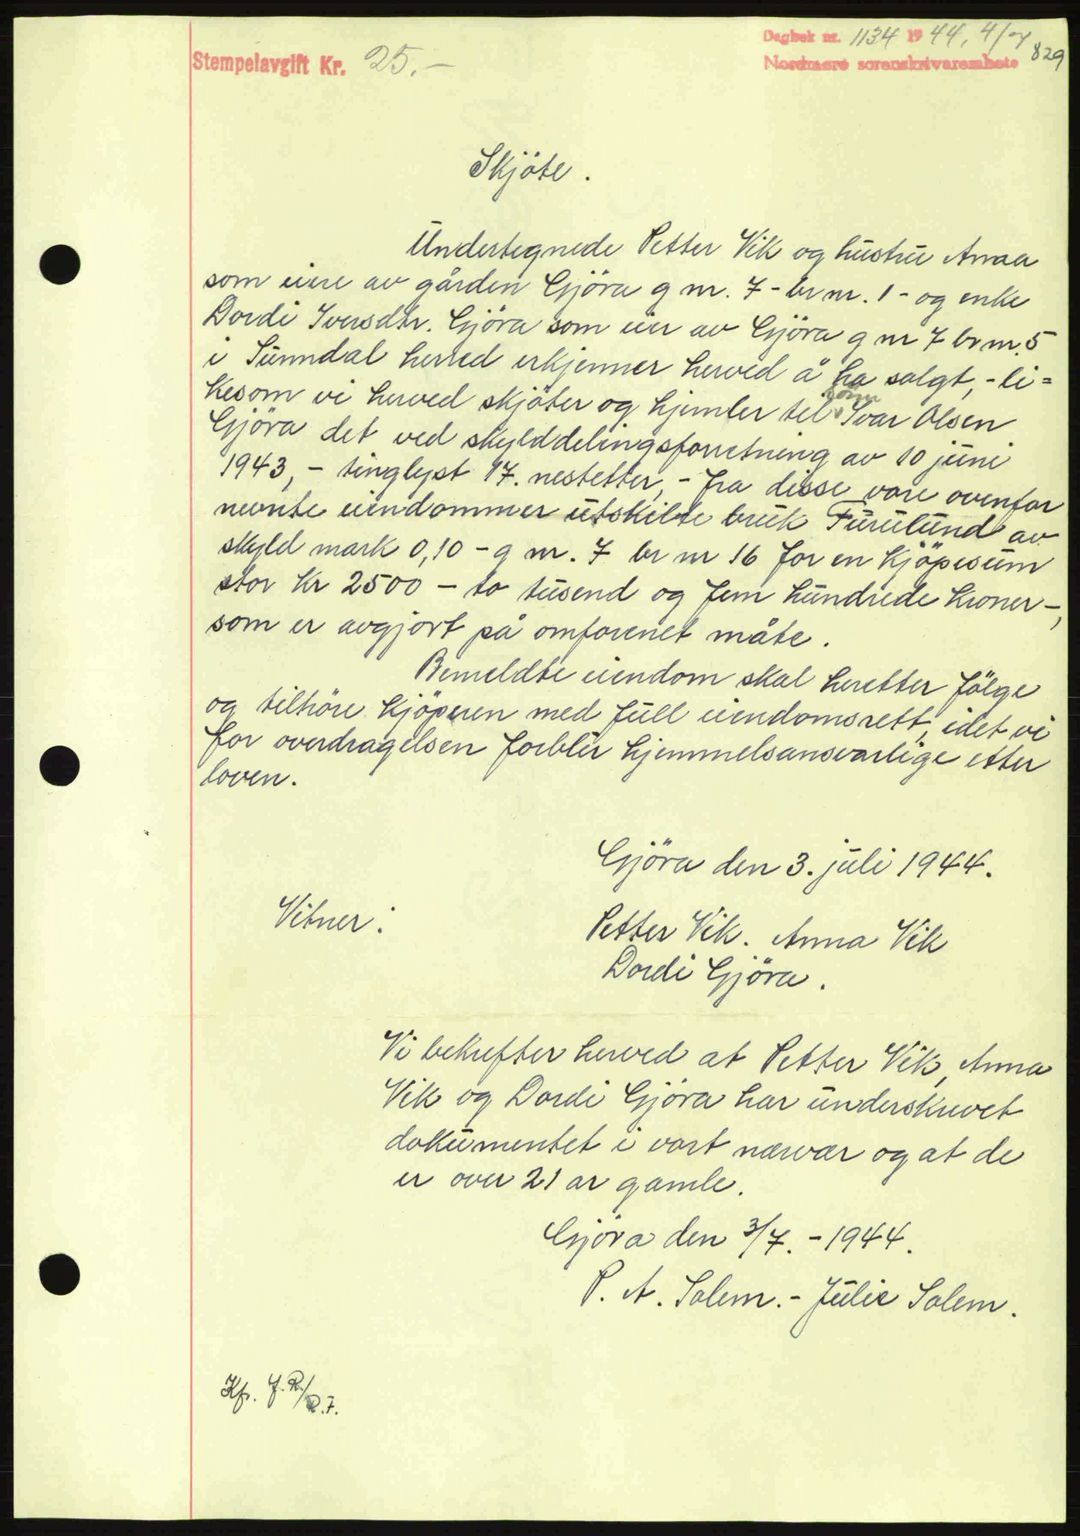 Stempelavgift Kr. 25.-
Dagbok nr. 1134 1944, 4/7
Nordmøre sorenskriverembete
829
Skjöte.
Undertegnede Petter Vik og hustru Anna
som eiere av gården Gjöra g nr. 7 - br nr. 1 - og enke
Dordi Iversdtr. Gjöra som eier av Gjöra g nr 7 br nr. 5
i Sunndal herred erkjenner herved å ha solgt, - li=
kesom vi herved skjöter og hjemler til sönn Ivar Olsen
Gjöra det ved skylddelingsforretning av 10 juni
1943, - tinglyst 17. nestetter, - fra disse vore ovenfor
nevnte eiendommer utskilte bruk Furulund av
skyld mark 0,10 - g nr. 7 br nr 16 for en kjöpesum
stor kr 2500 - to tusend og fem hundrede kroner -,
som er avgjort på omforenet måte.
Bemeldte eiendom skal heretter fölge
og tilhöre kjöperen med full eiendomsrett, idet vi
for overdragelsen forblir hjemmelsansvarlige etter
loven.
Gjöra den 3. juli 1944.
Vitner:
Petter Vik. Anna Vik
Dordi Gjöra.
Vi bekrefter herved at Petter Vik, Anna
Vik og Dordi Gjöra har underskrevet
dokumentet i vort nærvær og at de
er over 21 ar gamle.
Gjöra den 3/7. - 1944.
P. A. Solem. - Julie Solem.
Kfr. J.R./
R.F.